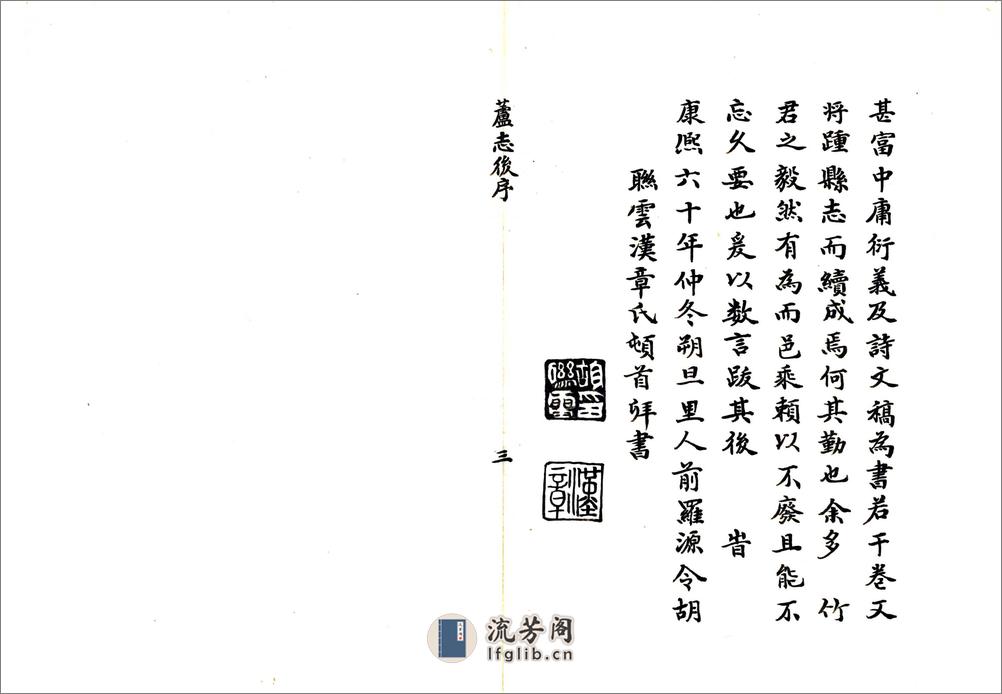 甚富中庸衍義及詩文稿為書若干卷又
将踵縣志而續成焉何其勤也余多　竹
君之毅然有為而邑乘賴以不廢且能不
忘久要也爰以数言跋其後　旹
康熙六十年仲冬朔旦里人前羅源令胡
聯雲漢章氏頓首拜書
胡印聯雲
漢章
蘆志後序
三
流芳阁
lfglib.cn